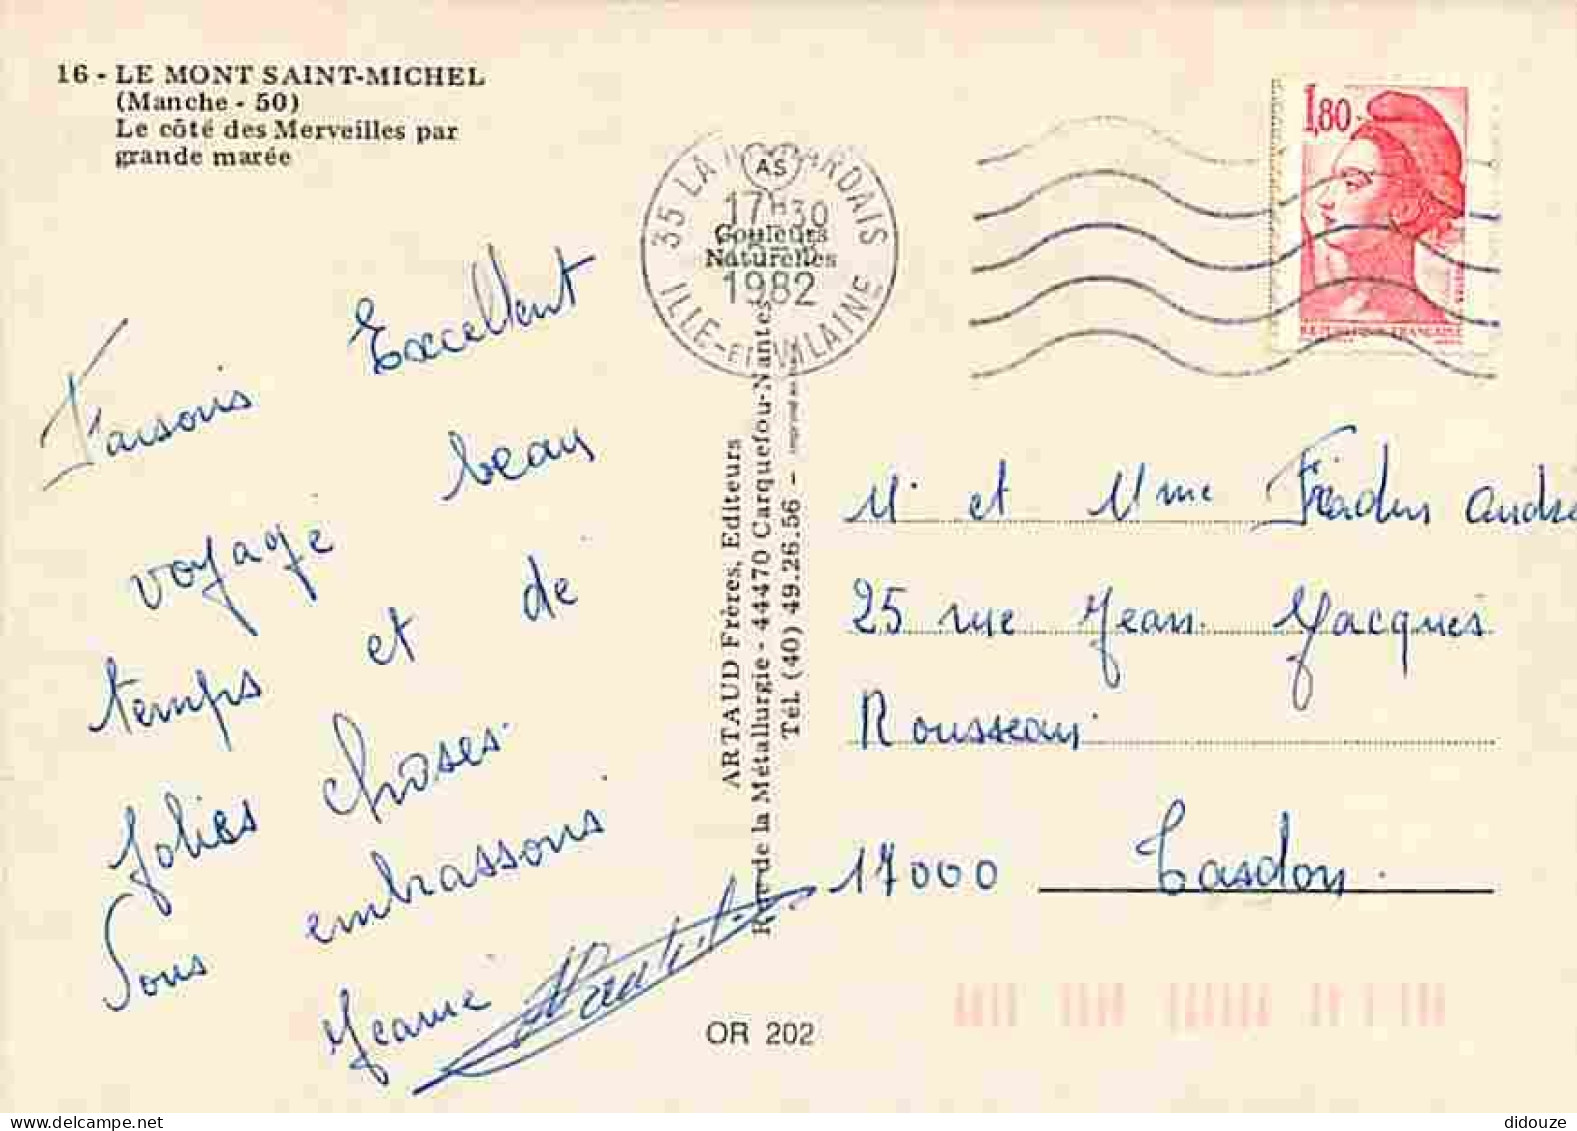 16 - LE MONT SAINT-MICHEL
(Manche - 50)
Le côté des Merveilles par
grande marée
35 LA ILLE-et-VILAINE
AS
17H30
1982
Couleurs
Naturelles
1,80
REPUBLIQUE FRANCAISE
Faisons Excellent
voyage beau
temps et de
jolies choses.
Vous embrassons
Jeanne
ARTAUD Frères, Editeurs
Rue de la Métallurgie - 44470 Carquefou-Nantes
Tél. (40) 49.26.56 -
Mr et Mme André
25 rue Jean Jacques
Rousseau
17000 Tasdon.
OR 202
didouze